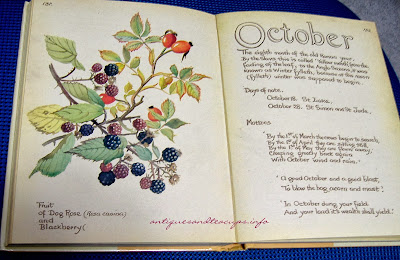 Fruit
of Dog Rose (Rosa canina)
and
Blackberry (
antiquesandteacups.info
October
The eighth month of the old Roman year.
By the Slavs this is called 'Yellow month', from the
fading of the leaf; to the Anglo Saxons, it was
known as Winter fylleth, because at this moon
(fylleth) winter was supposed to begin.
Days of note.
October 18. St. Luke.
October 28. St. Simon and St. Jude.
Mottoes
"By the 1st of March the crows begin to search,
By the 1st of April they are sitting still,
By the 1st of May they are flown away;
Creeping greedy back again
With October wind and rain."
"A good October and a good blast,
To blow the hog acorn and mast."
"In October dung your field
And your land it's wealth shall yield."